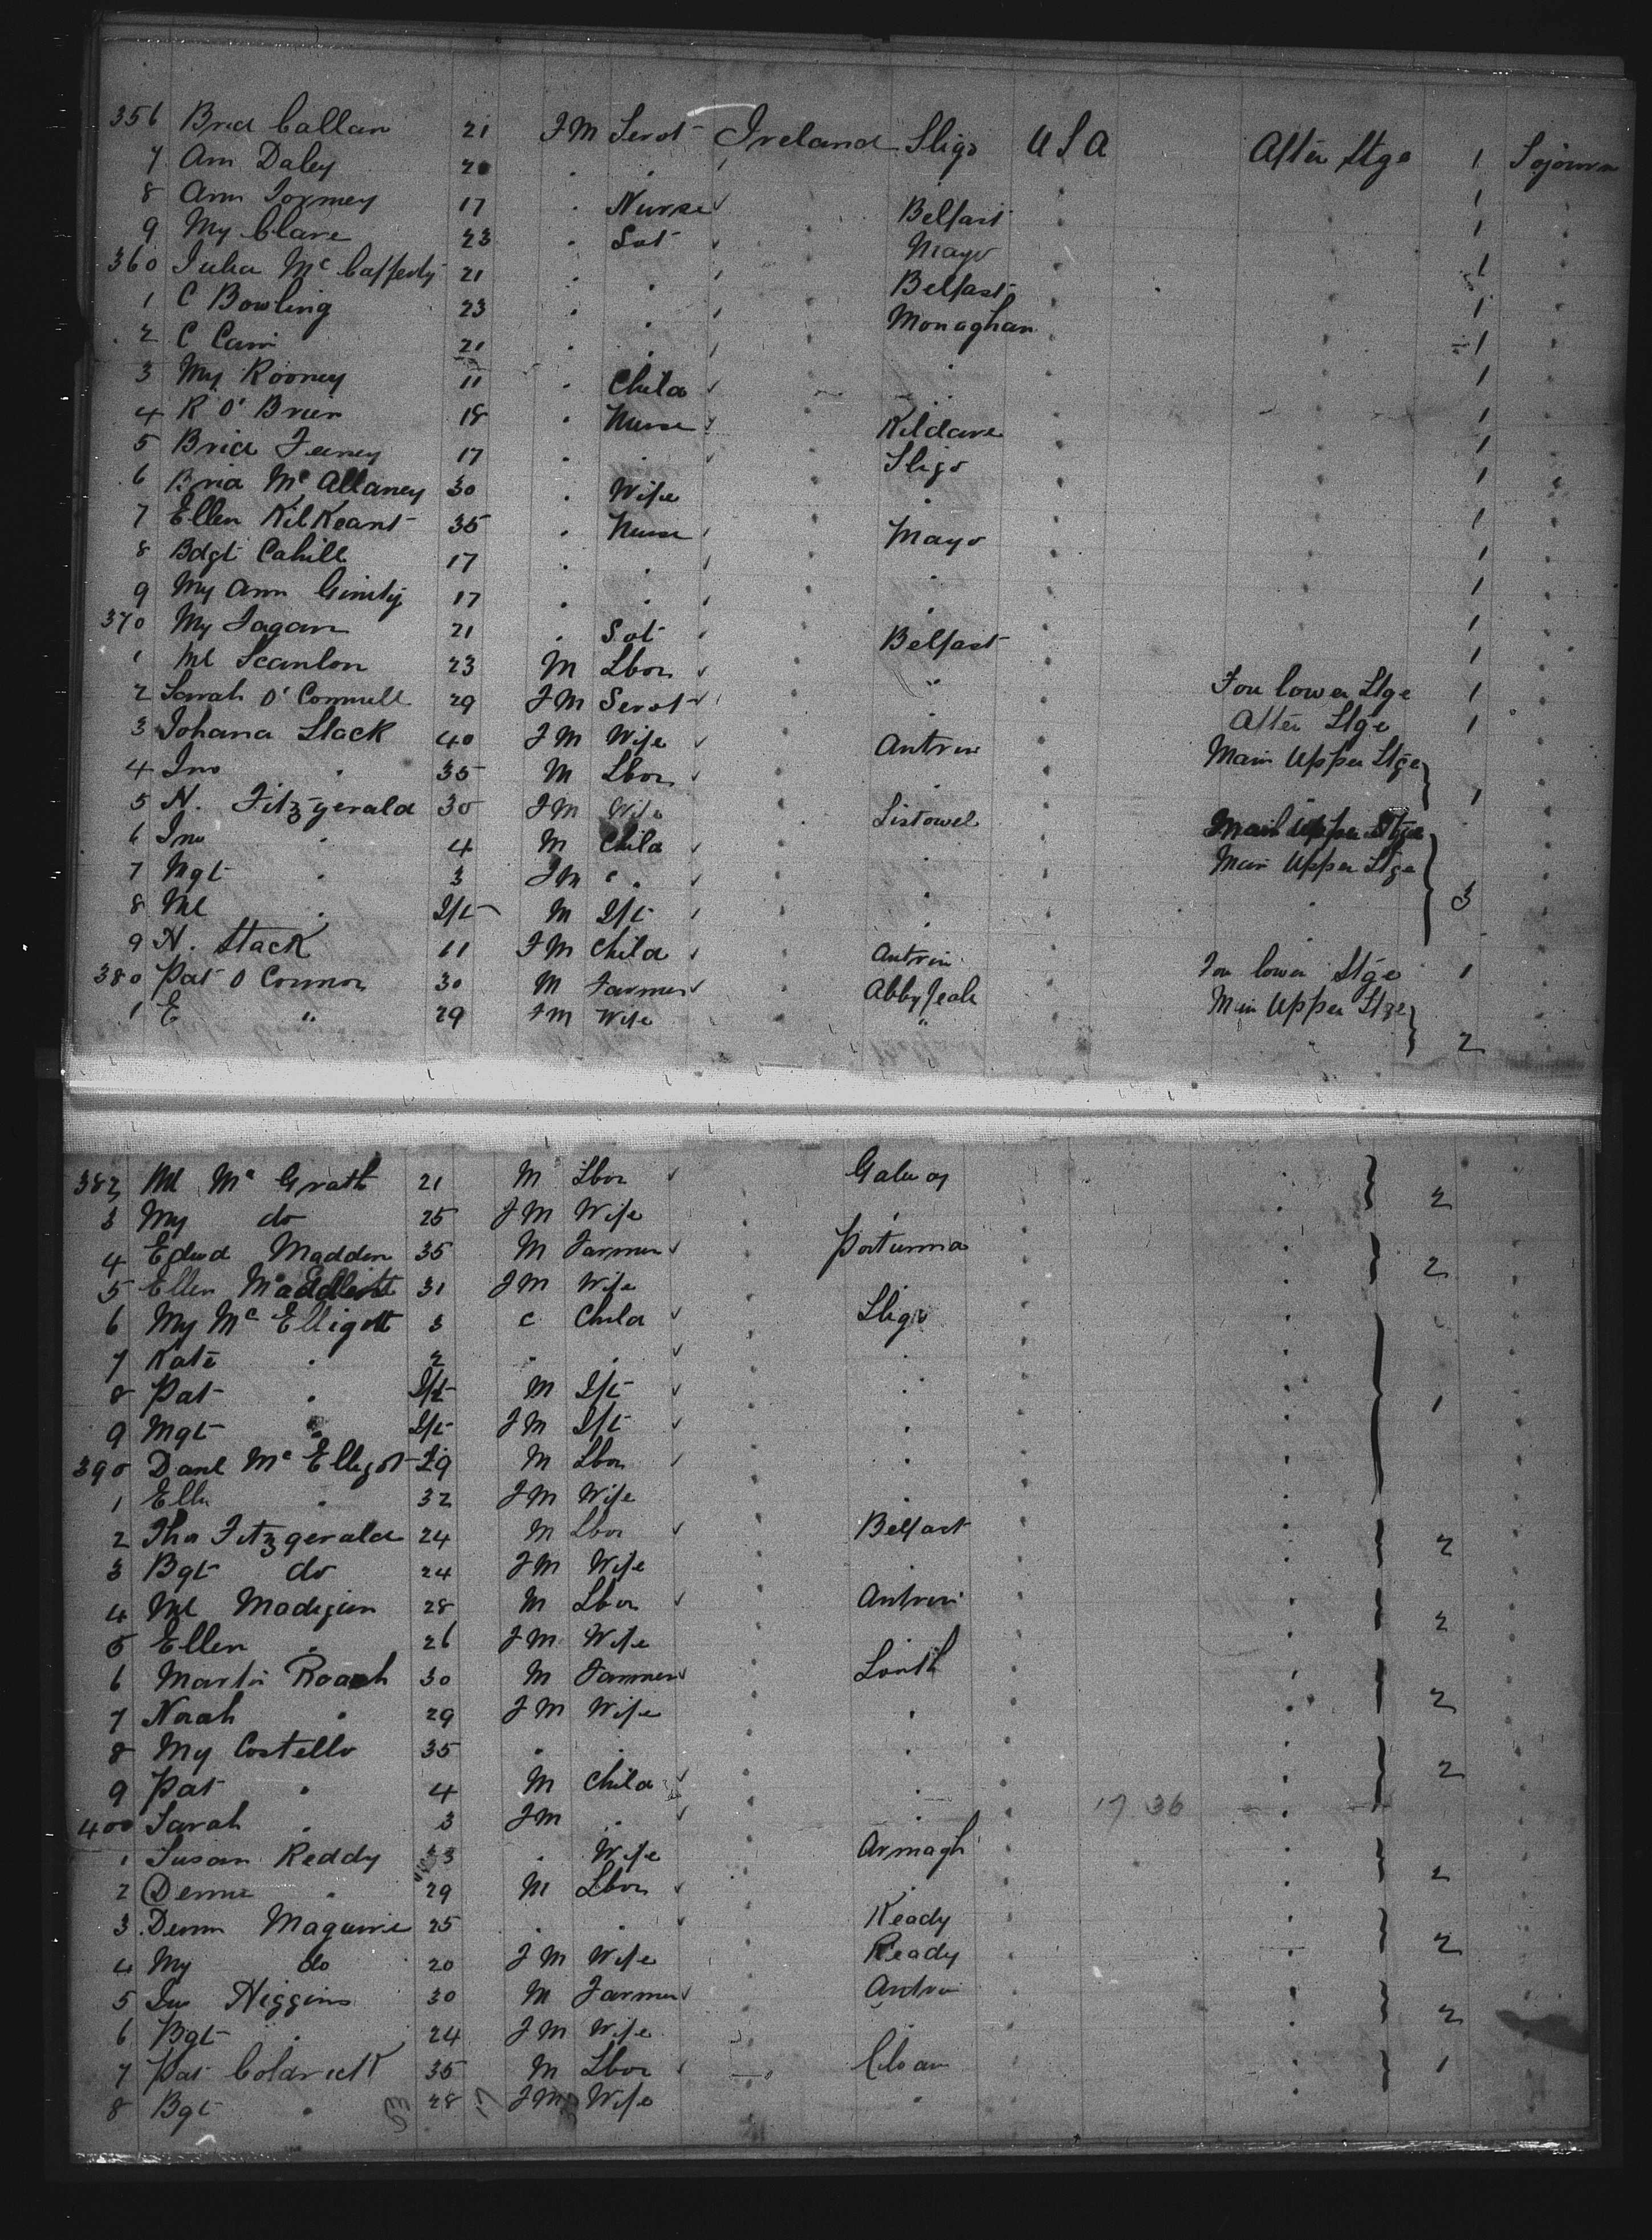 356 Brid Callan 21 F M Servt Ireland Sligo U S A After Stge 1 Sojourn
7 Ann Daley 20 " " " " " 1 "
8 Ann Tormey 17 " Nurse Belfast " " 1 "
9 My Clare 23 " Svt Mayo " " 1 "
360 Julia Mc Cafferty 21 " " Belfast " " 1 "
1 C Bowling 23 " " Monaghan " " 1 "
2 C Cain 21 " " " " " 1 "
3 My Rooney 11 " Child " " " 1 "
4 R O' Brien 18 " Nurse Kildare " " 1 "
5 Brid Feeney 17 " " Sligo " " 1 "
6 Brid Mc Allaney 30 " Wife " " " 1 "
7 Ellen KilKeant 35 " Nurse Mayo " " 1 "
8 Bdgt Cahill 17 " " " " " 1 "
9 My Ann Ginity 17 " " " " " 1 "
370 My Fagan 21 " Svt Belfast " " 1 "
1 Ml Scanlon 23 M Lbor " " For lower Stge 1 "
2 Sarah O' Connell 29 F M Servt " " After Stge 1 "
3 Johana Stack 40 F M Wife Antrim " Main Upper Stge "
4 Jno " 35 M Lbor " " 1 "
5 N. Fitzgerald 30 F M Wife Listowel " Main Upper Stge "
6 Jno " 4 M Child " " Main Upper Stge "
7 Mgt " 3 F M " " " " 3 "
8 Ml " Ift M Ift " " "
9 N. Stack 11 F M Child Antrim " For lower Stge 1 "
380 Pat O Connor 30 M Farmer Abbyfeale " Main Upper Stge "
1 E " 29 F M Wife " " " 2 "
382 Ml Mc Grath 21 M Lbor Galway " 2 "
3 My do 25 F M Wife " " " "
4 Edwd Madden 35 M Farmer Portumna " " 2 "
5 Ellen 31 F M Wife " " "
6 My Mc Elligott 3 c Child Sligo " " "
7 Kate " 2 " " " " " "
8 Pat " Ift M Ift " " " 1 "
9 Mgt " Ift F M Ift " " " "
390 Danl Mc Elligot 29 M Lbor " " " "
1 Ellen " 32 F M Wife " " " "
2 Tho Fitzgerald 24 M Lbor Belfast " " 2 "
3 Bgt do 24 F M Wife " " "
4 Ml Madigan 28 M Lbor Antrim " " 2 "
5 Ellen " 26 F M Wife " " "
6 Martin Roach 30 M Farmer Louth " " 2 "
7 Norah " 29 F M Wife " " " "
8 My Costello 35 " " " " " 2 "
9 Pat " 4 M Child " " " "
400 Sarah " 3 F M " " " 17 36 " "
1 Susan Reddy 33 " Wife Armagh " " 2 "
2 Dennis " 29 M Lbor " " " "
3 Denn Maguire 25 " " Keady " " 2 "
4 My do 20 F M Wife Keady " " "
5 Jno Higgins 30 M Farmer Antrim " " 2 "
6 Bgt " 24 F M Wife " " " "
7 Pat Coldrick 35 M Lbor " " 1 "
8 Bgt " 28 F M Wife " " " "